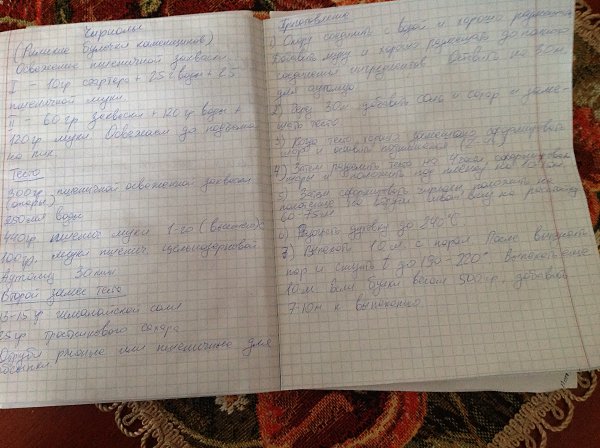 Чириолы
(Римские булочки каменщиков)
Освежение пшеничной закваски
I - 10гр стартера + 25 г воды + 25
пшеничной муки.
II - 60 гр. закваски + 120 гр воды +
120 гр. муки. Освежаем до подъема
на пик.
Тесто
300гр. пшеничной освеженной закваски
(опары)
250 мл воды
440гр. пшенич муки 1-го (высшего)с
100гр. муки пшенич. цельнозерновой
Аутолиз 30 мин
Второй замес теста
13-15 гр гималайской соли
25 гр тростникового сахара
Отруби ржаные или пшеничные для
обсыпки.
Приготовление
1) Опару соединить с водой и хорошо размешать
Добавить муку и хорошо размешать до полного
соединения ингредиентов. Оставить на 30 м.
для аутолиза
2) Через 30м добавить соль и сахар и заме-
шать тесто
3) Когда тесто готово замешано сформировать
шар и оставить
4) Затем разделить тесто на части сформировать
шары и положить под пленку на
5) Затем сформировать чириолы, положить на
60-75м
6) Разогреть духовку до 240°C
7) Выпекать 10 м. с паром. После выпустить
пар и снизить t до 190-220° Выпекать еще
10 м. Если булки весом 500 гр, добавить
7-10м к выпеканию